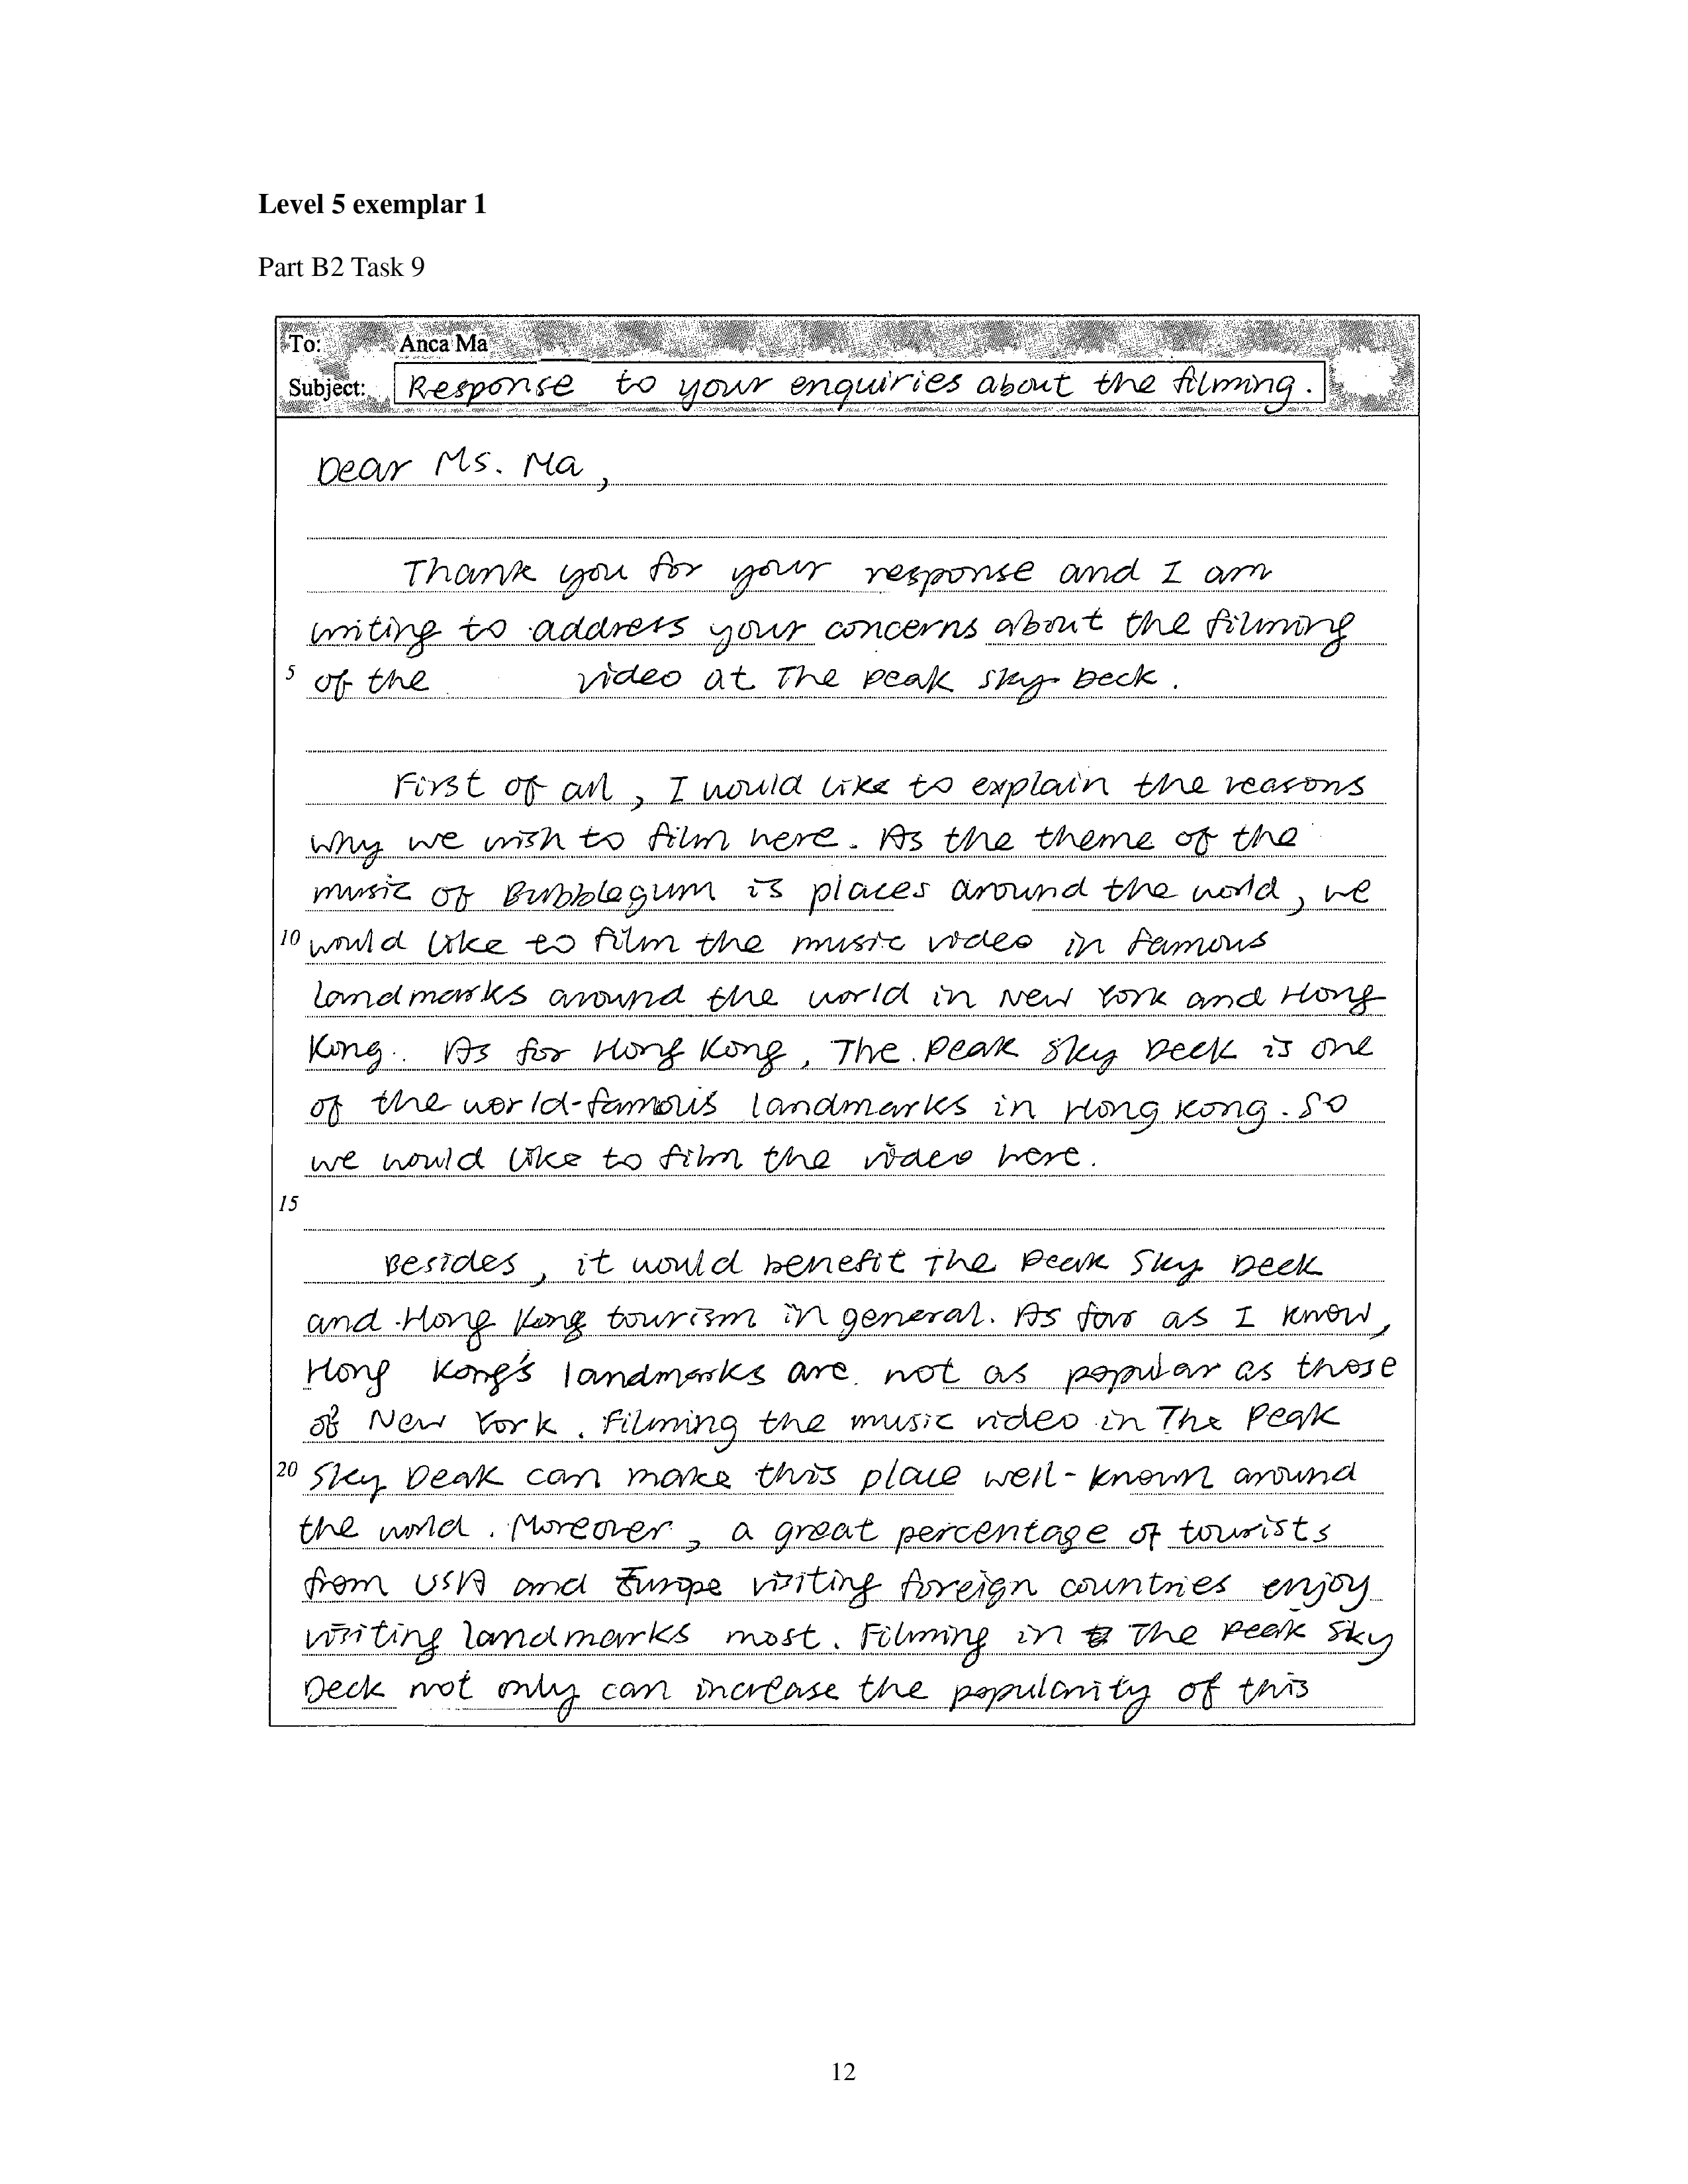 Level 5 exemplar 1
Part B2 Task 9
To: Anca Ma
Subject: Response to your enquiries about the filming.
Dear Ms. Ma,
Thank you for your response and I am
writing to address your concerns about the filming
5 of the video at The Peak Sky Deck.
First of all, I would like to explain the reasons
why we wish to film here. As the theme of the
music of Bubblegum is places around the world, we
10 would like to film the music video in famous
landmarks around the world in New York and Hong
Kong. As for Hong Kong, The Peak Sky Deck is one
of the world-famous landmarks in Hong Kong. So
we would like to film the video here.
15
Besides, it would benefit The Peak Sky Deck
and Hong Kong tourism in general. As far as I know,
Hong Kong's landmarks are not as popular as those
of New York. Filming the music video in The Peak
20 Sky Deak can make this place well-known around
the world. Moreover, a great percentage of tourists
from USA and Europe visiting foreign countries enjoy
visiting landmarks most. Filming in The Peak Sky
Deck not only can increase the popularity of this
12